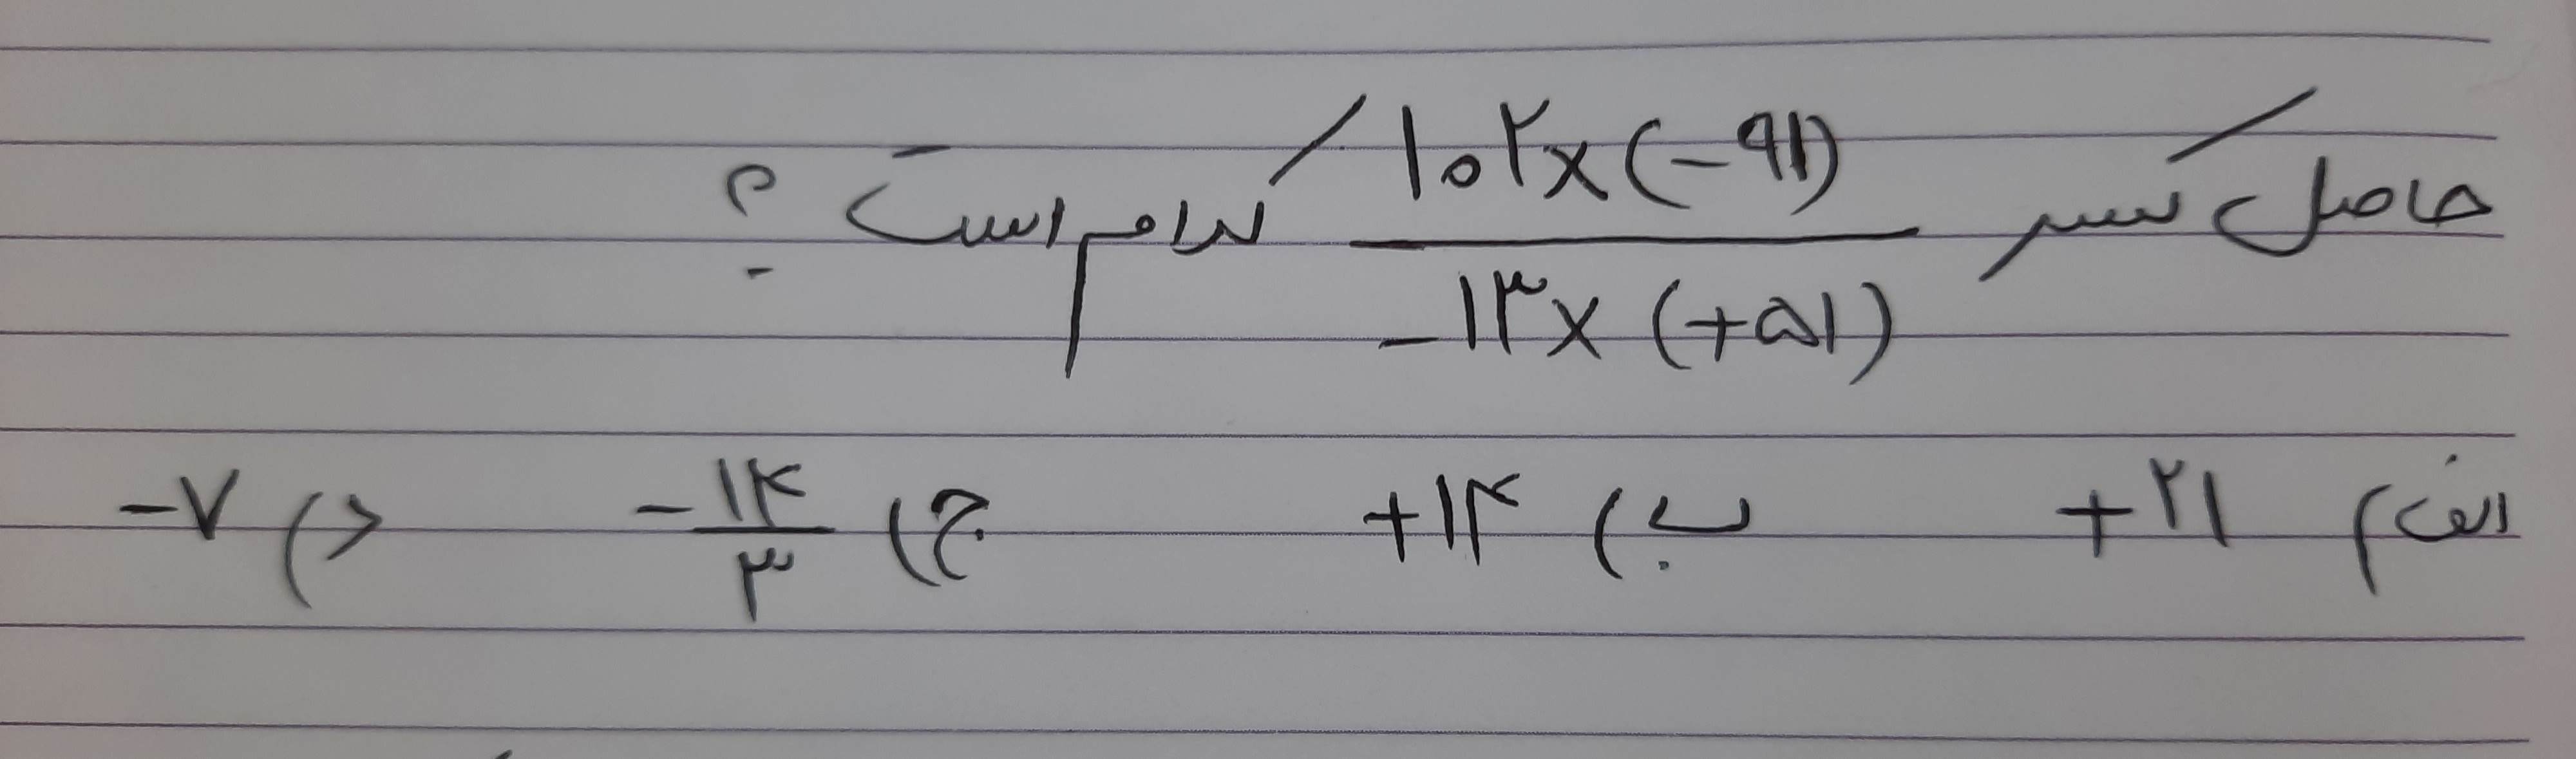 حاصل کسر ۱۰۲×(-۹۱) / -۱۳×(+۵۱) کدام است؟
الف) +۲۱ ب) +۱۴ ج) -۱۴/۳ د) -۷